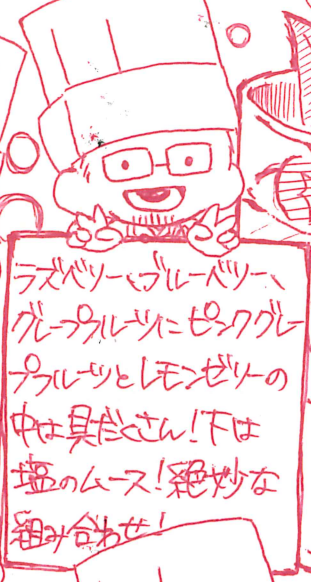 ラズベリー、ブルーベリー、
グレープフルーツにピンクグレー
プフルーツとレモンゼリーの
中は具だくさん!下は
塩のムース!絶妙な
組み合わせ!